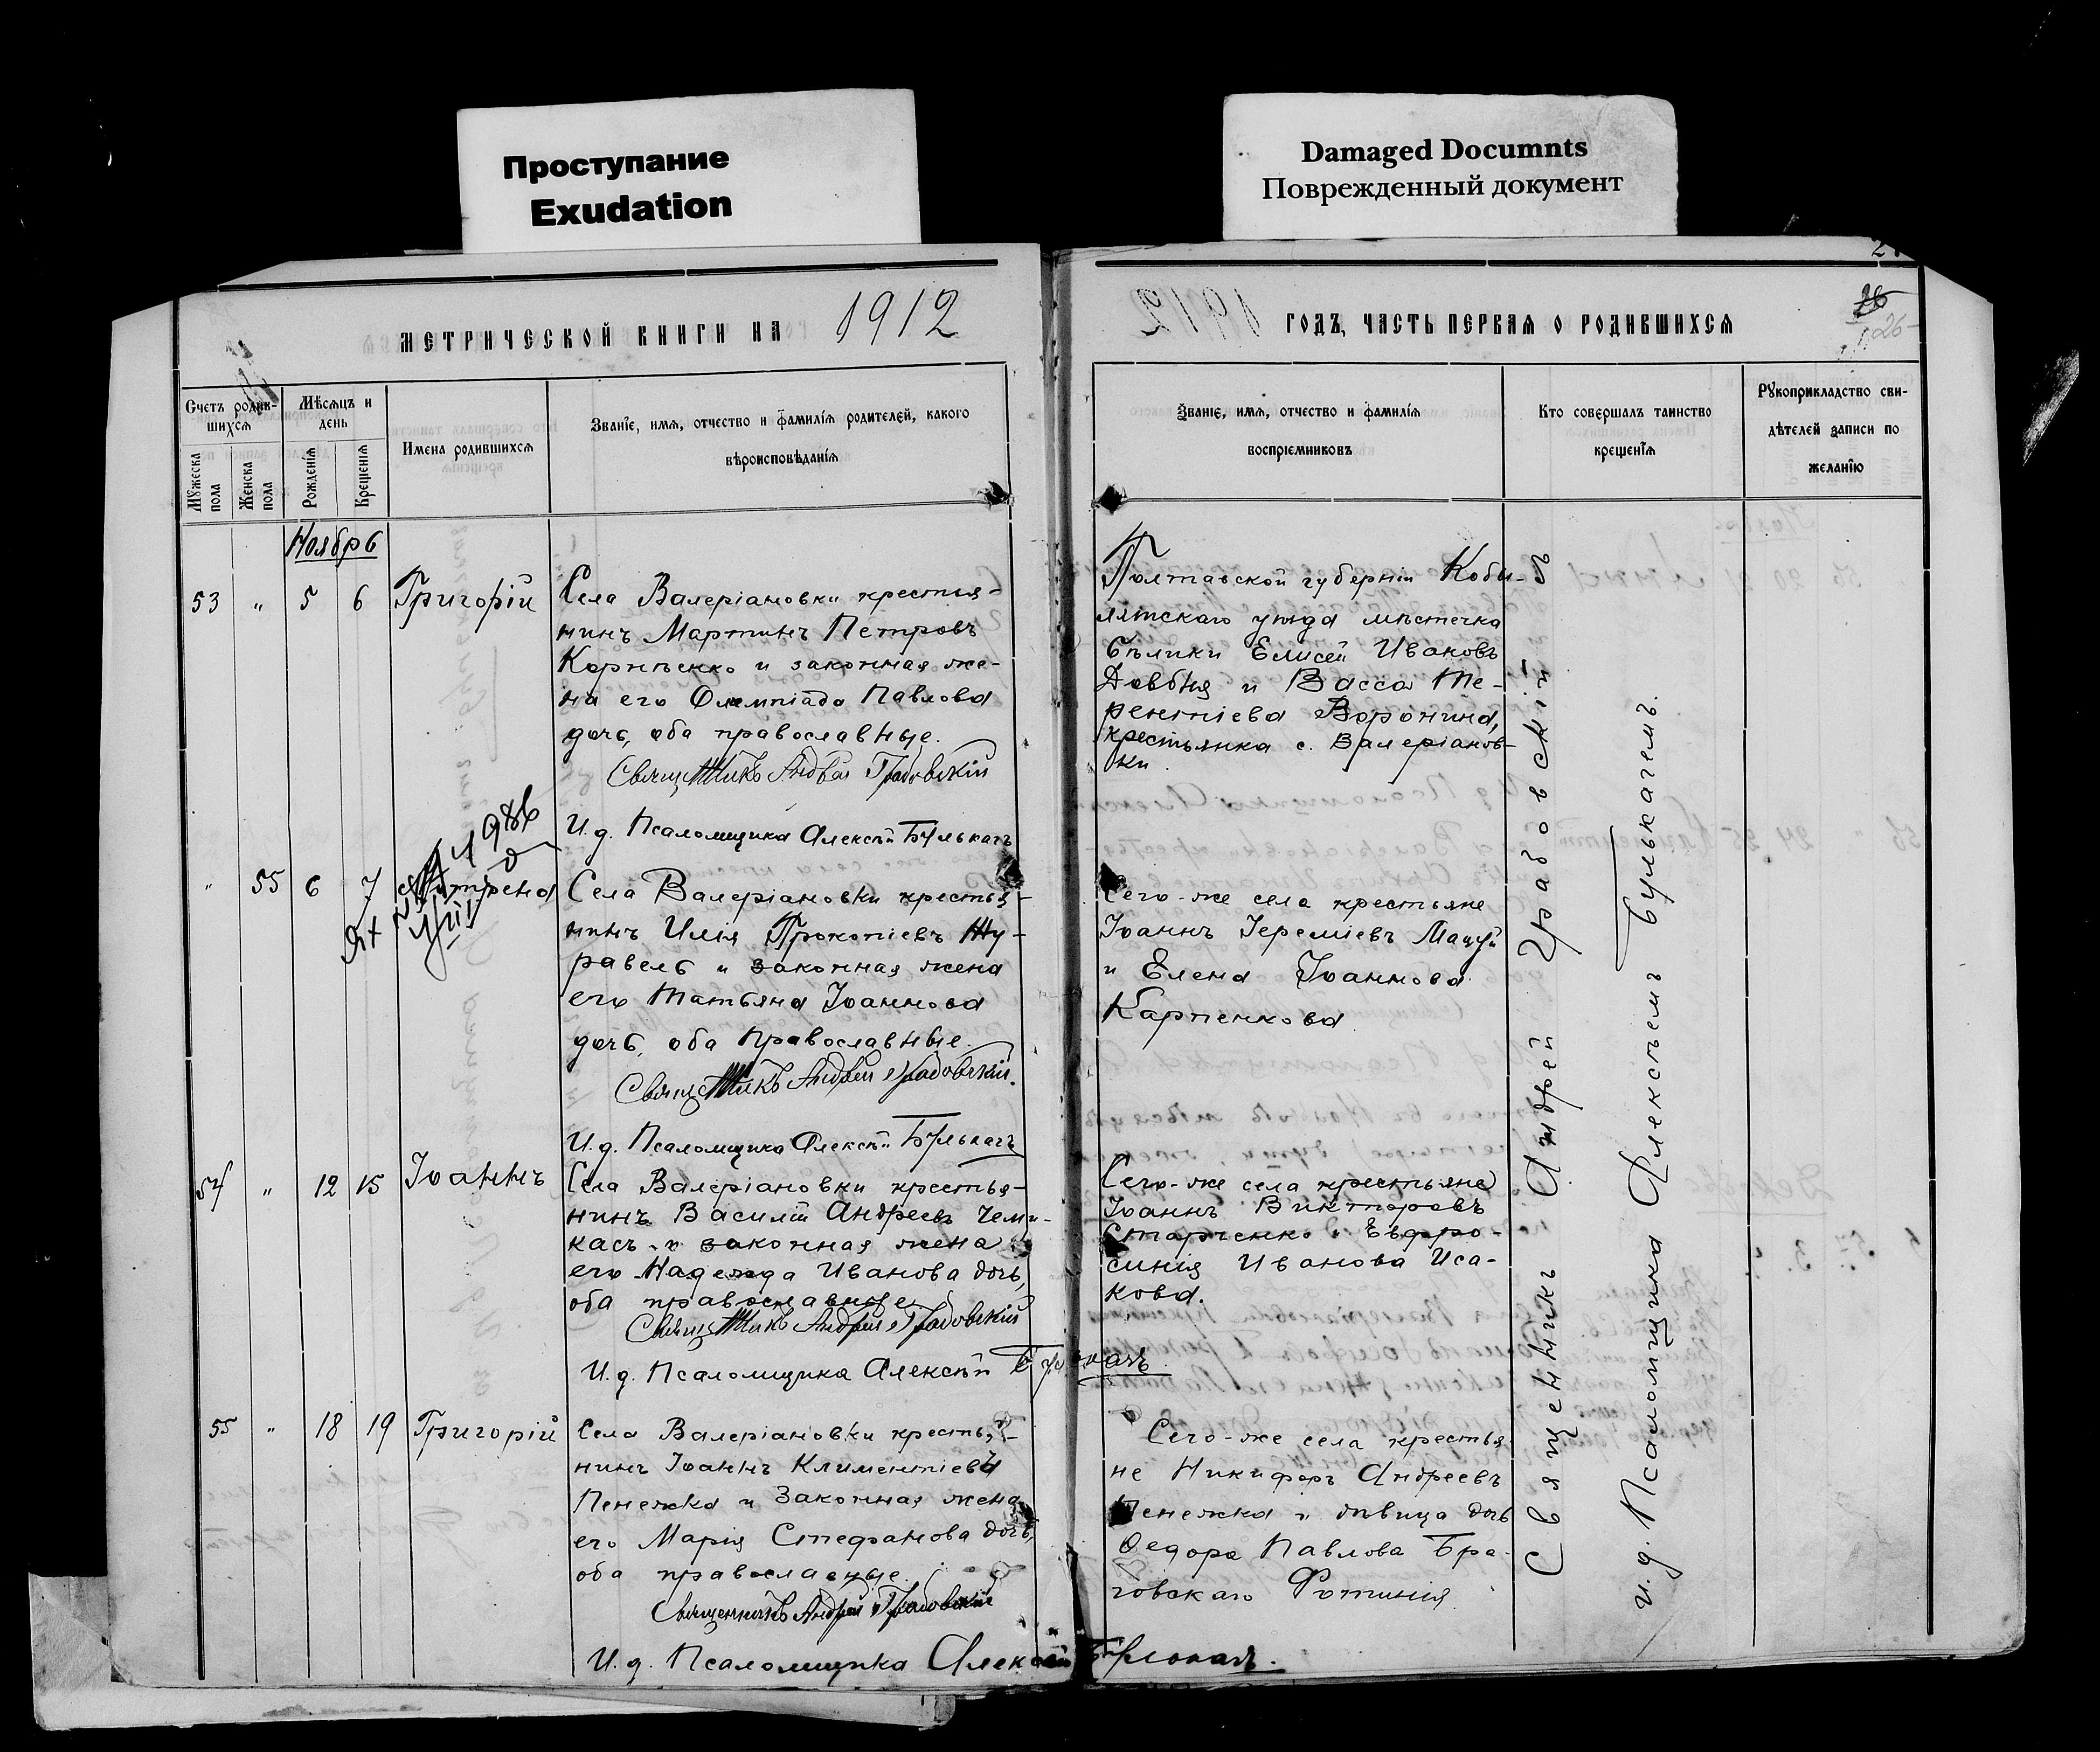 Проступание
Exudation
Damaged Documnts
Поврежденный документ
МЕТРИЧЕСКОЙ КНИГИ НА 1912
ГОДЪ, ЧАСТЬ ПЕРВАЯ О РОДИВШИХСЯ
26
Счетъ родив-
шихся
Мужеска пола
Женска пола
Мѣсяцъ и
день
Рожденія
Крещенія
Имена родившихся
Званіе, имя, отчество и фамилія родителей, какого
вѣроисповѣданія
Званіе, имя, отчество и фамилія
воспріемниковъ
Кто совершалъ таинство
крещенія
Рукоприкладство сви-
дѣтелей записи по
желанію
Ноябрь
53 " 5 6 Григорій
Села Валеріановки крестья-
нинъ Мартинъ Петровъ
Корнѣенко и законная же-
на его Олимпіада Павлова
дочь, оба православные.
Священникъ Андрей Грабовскій
И. д. Псаломщика Алексѣй Булькачъ
Полтавской губерніи Кобы-
лятскаго уѣзда мѣстечка
Бѣлики Елисей Ивановъ
Довбня и Васса Те-
рентіева Воронина,
крестьянка с. Валеріанов-
ки
" 55 6 7
Села Валеріановки крестья-
нинъ Илія Прокопіевъ Жу-
равель и законная жена
его Татьяна Іоаннова
дочь, оба Православные.
Священникъ Андрей Грабовскій.
И. д. Псаломщика Алексѣй Булькачъ
Сего-же села крестьяне
Іоаннъ Іереміевъ Мацуй
и Елена Іоаннова
Карпенкова.
54 " 12 15 Іоаннъ
Села Валеріановки крестья-
нинъ Василій Андреевъ Чеми-
касъ и законная жена
его Надежда Иванова дочь,
оба православные.
Священникъ Андрей Грабовскій
И. д. Псаломщика Алексѣй Булькачъ.
Сего-же села крестьяне
Іоаннъ Викторовъ
Старченко и Евфро-
синія Иванова Иса-
кова.
55 " 18 19 Григорій
Села Валеріановки крестья-
нинъ Іоаннъ Климентіевъ
Пенежка и законная жена
его Марія Стефанова дочь,
оба православные.
Священникъ Андрей Грабовскій
И. д. Псаломщика Алексѣй Булькачъ.
Сего-же села крестья-
не Никифоръ Андреевъ
Пенежка и дѣвица дочь
Ѳедора Павлова Бра-
говскаго Фотинія.
Священникъ Андрей Грабовскій
и. д. Псаломщика Алексѣемъ Булькачемъ.